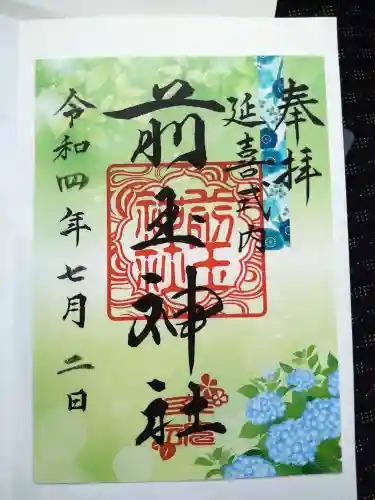 奉拝
延喜式内
前玉神社
令和四年七月二日
前玉
神社